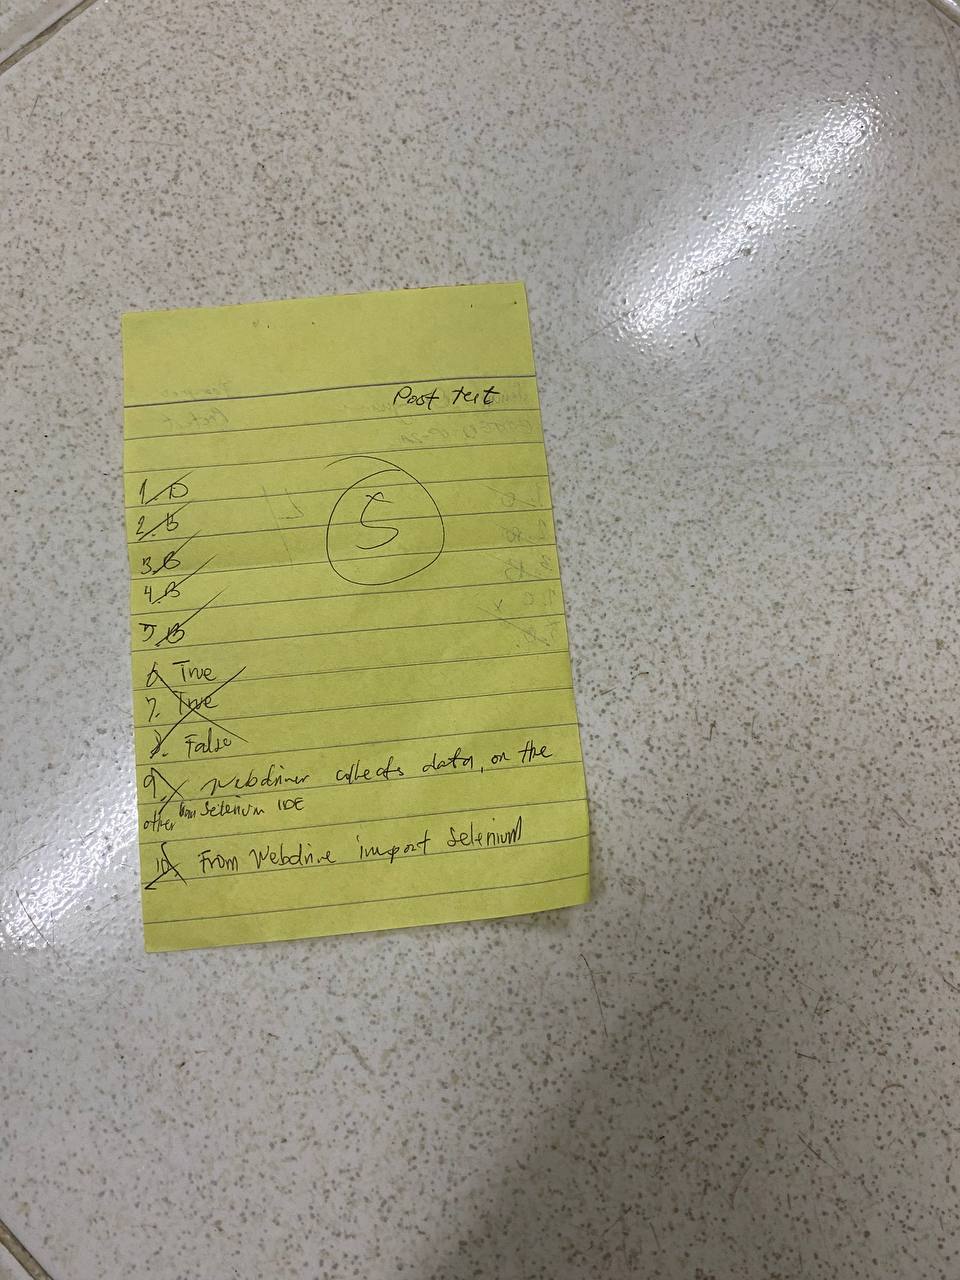 Post test
5
1. D
2. B
3. B
4. B
5. B
6. True
7. True
8. False
9. Webdriver collects data, on the
other Selenium IDE
10. From Webdrive import Selenium